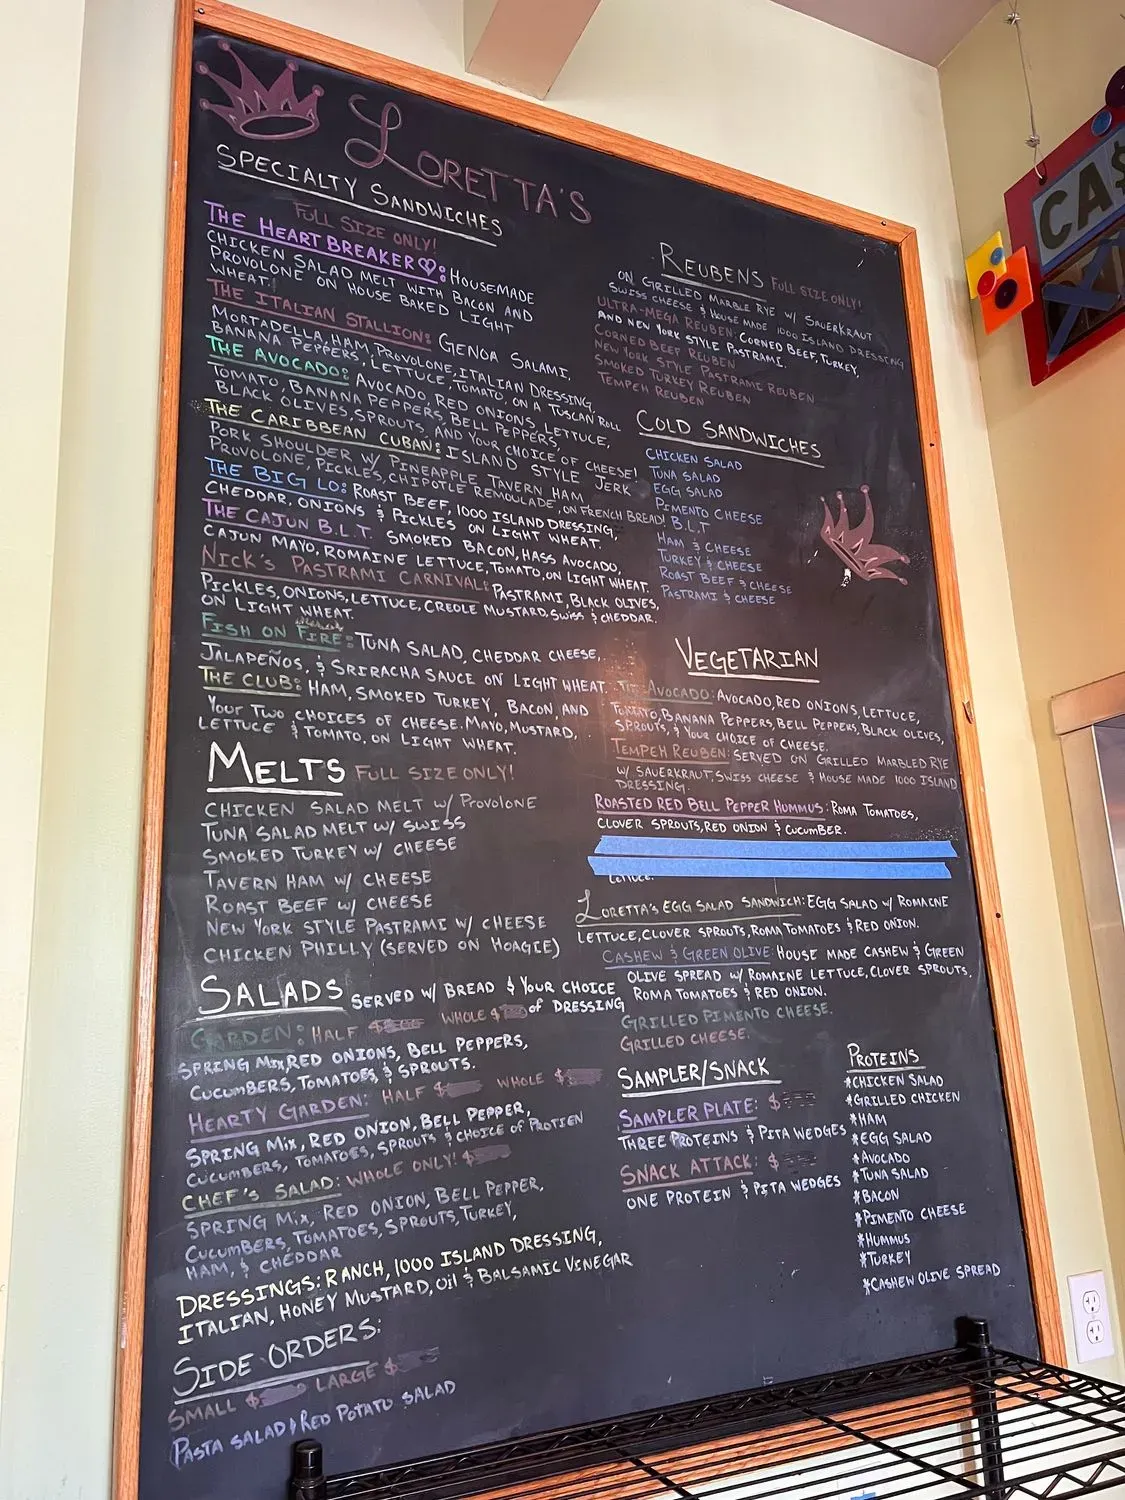 LORETTA'S
SPECIALTY SANDWICHES
FULL SIZE ONLY!
THE HEART BREAKER♡: HOUSE-MADE
CHICKEN SALAD MELT WITH BACON AND
PROVOLONE ON HOUSE BAKED LIGHT
WHEAT!
THE ITALIAN STALLION: GENOA SALAMI,
MORTADELLA, HAM, PROVOLONE, ITALIAN DRESSING,
BANANA PEPPERS, LETTUCE, TOMATO, ON A TUSCAN ROLL
THE AVOCADO: AVOCADO, RED ONIONS, LETTUCE,
TOMATO, BANANA PEPPERS, BELL PEPPERS,
BLACK OLIVES, SPROUTS, AND YOUR CHOICE OF CHEESE!
THE CARIBBEAN CUBAN: ISLAND STYLE JERK
PORK SHOULDER W/ PINEAPPLE TAVERN HAM
PROVOLONE, PICKLES, CHIPOTLE REMOULADE, ON FRENCH BREAD!
THE BIG LO: ROAST BEEF, 1000 ISLAND DRESSING,
CHEDDAR, ONIONS & PICKLES ON LIGHT WHEAT.
THE CAJUN B.L.T. SMOKED BACON, HASS AVOCADO,
CAJUN MAYO, ROMAINE LETTUCE, TOMATO, ON LIGHT WHEAT.
NICK'S PASTRAMI CARNIVAL: PASTRAMI, BLACK OLIVES,
PICKLES, ONIONS, LETTUCE, CREOLE MUSTARD, SWISS & CHEDDAR.
ON LIGHT WHEAT.
FISH ON FIRE: TUNA SALAD, CHEDDAR CHEESE,
JALAPEÑOS, & SRIRACHA SAUCE ON LIGHT WHEAT.
THE CLUB: HAM, SMOKED TURKEY, BACON, AND
YOUR TWO CHOICES OF CHEESE. MAYO, MUSTARD,
LETTUCE & TOMATO, ON LIGHT WHEAT.
MELTS FULL SIZE ONLY!
CHICKEN SALAD MELT W/ PROVOLONE
TUNA SALAD MELT W/ SWISS
SMOKED TURKEY W/ CHEESE
TAVERN HAM W/ CHEESE
ROAST BEEF W/ CHEESE
NEW YORK STYLE PASTRAMI W/ CHEESE
CHICKEN PHILLY (SERVED ON HOAGIE)
SALADS SERVED W/ BREAD & YOUR CHOICE
OF DRESSING
GARDEN: HALF $ WHOLE $
SPRING MIX, RED ONIONS, BELL PEPPERS,
CUCUMBERS, TOMATOES, & SPROUTS.
HEARTY GARDEN: HALF $ WHOLE $
SPRING MIX, RED ONION, BELL PEPPER,
CUCUMBERS, TOMATOES, SPROUTS & CHOICE OF PROTIEN
CHEF'S SALAD: WHOLE ONLY! $
SPRING MIX, RED ONION, BELL PEPPER,
CUCUMBERS, TOMATOES, SPROUTS, TURKEY,
HAM, & CHEDDAR
DRESSINGS: RANCH, 1000 ISLAND DRESSING,
ITALIAN, HONEY MUSTARD, OIL & BALSAMIC VINEGAR
SIDE ORDERS:
SMALL $ LARGE $
PASTA SALAD / RED POTATO SALAD
REUBENS FULL SIZE ONLY!
ON GRILLED MARBLE RYE W/ SAUERKRAUT
SWISS CHEESE & HOUSE MADE 1000 ISLAND DRESSING
ULTRA-MEGA REUBEN: CORNED BEEF, TURKEY,
AND NEW YORK STYLE PASTRAMI.
CORNED BEEF REUBEN
NEW YORK STYLE PASTRAMI REUBEN
SMOKED TURKEY REUBEN
TEMPEH REUBEN
COLD SANDWICHES
CHICKEN SALAD
TUNA SALAD
EGG SALAD
PIMENTO CHEESE
B.L.T
HAM & CHEESE
TURKEY & CHEESE
ROAST BEEF & CHEESE
PASTRAMI & CHEESE
VEGETARIAN
THE AVOCADO: AVOCADO, RED ONIONS, LETTUCE,
TOMATO, BANANA PEPPERS, BELL PEPPERS, BLACK OLIVES,
SPROUTS, & YOUR CHOICE OF CHEESE.
TEMPEH REUBEN: SERVED ON GRILLED MARBLED RYE
W/ SAUERKRAUT, SWISS CHEESE & HOUSE MADE 1000 ISLAND
DRESSING.
ROASTED RED BELL PEPPER HUMMUS: ROMA TOMATOES,
CLOVER SPROUTS, RED ONION & CUCUMBER.
LETTUCE.
LORETTA'S EGG SALAD SANDWICH: EGG SALAD W/ ROMAINE
LETTUCE, CLOVER SPROUTS, ROMA TOMATOES & RED ONION.
CASHEW & GREEN OLIVE: HOUSE MADE CASHEW & GREEN
OLIVE SPREAD W/ ROMAINE LETTUCE, CLOVER SPROUTS,
ROMA TOMATOES & RED ONION.
GRILLED PIMENTO CHEESE.
GRILLED CHEESE.
SAMPLER/SNACK
SAMPLER PLATE: $
THREE PROTEINS & PITA WEDGES
SNACK ATTACK: $
ONE PROTEIN & PITA WEDGES
PROTEINS
*CHICKEN SALAD
*GRILLED CHICKEN
*HAM
*EGG SALAD
*AVOCADO
*TUNA SALAD
*BACON
*PIMENTO CHEESE
*HUMMUS
*TURKEY
*CASHEW OLIVE SPREAD
CA$